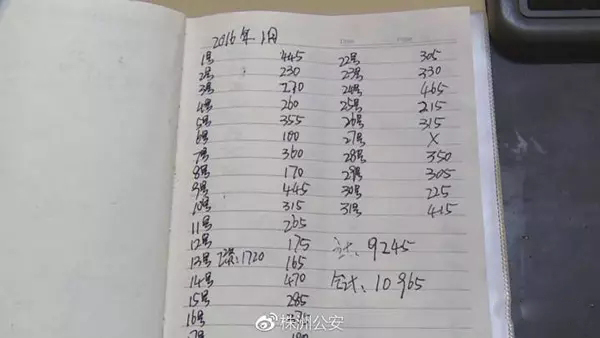 2016年1月
1号 445
2号 230
3号 230
4号 260
5号 355
6号 100
7号 360
8号 170
9号 445
10号 315
11号 265
12号 175
13号 1720 165
14号 470
15号 285
16号
22号 305
23号 330
24号 465
25号 215
26号 315
27号 X
28号 350
29号 305
30号 225
31号 415
9245
合计：10965
株洲公安